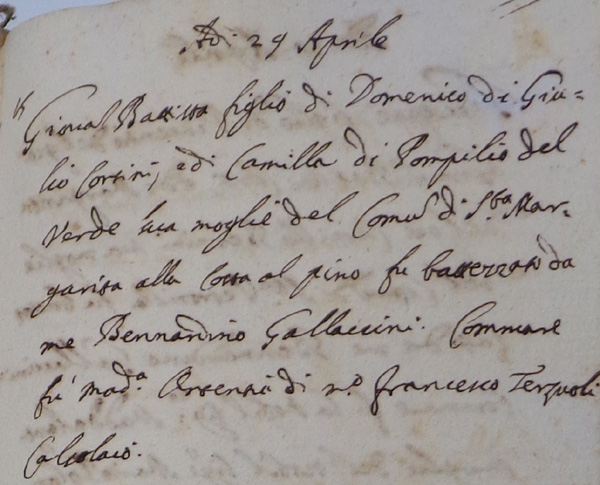 Adi 29 Aprile
Gioval Battista figlio di Domenico di Giu-
lio Cortini, e di Camilla di Pompilio del
Verde sua moglie del Comu.l di S.ta Mar-
garita alla Costa al pino fu battezzato da
me Bennardino Gallaccini. Commare
fu mad.a Orsenna di n.o francesco Terzuoli
Calzolaio.